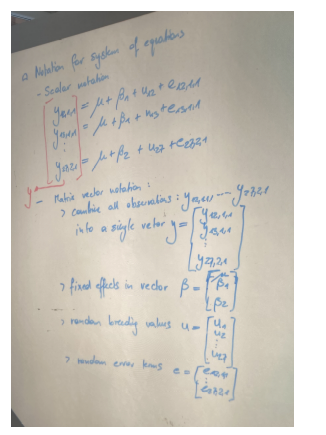 Notation for system of equations
- Scalar notation
y12,1,1 = μ + β1 + u12 + e12,1,1
y13,1,1 = μ + β1 + u13 + e13,1,1
⋮
y27,2,1 = μ + β2 + u27 + e27,2,1
y
- Matrix vector notation :
> combine all observations : y12,1,1 ... y27,2,1
into a single vector y = [y12,1,1
y13,1,1
⋮
y27,2,1]
> fixed effects in vector β = [μ
β1
β2]
> random breeding values u = [u1
u2
⋮
u27]
> random error terms e = [e12,1,1
⋮
e27,2,1]